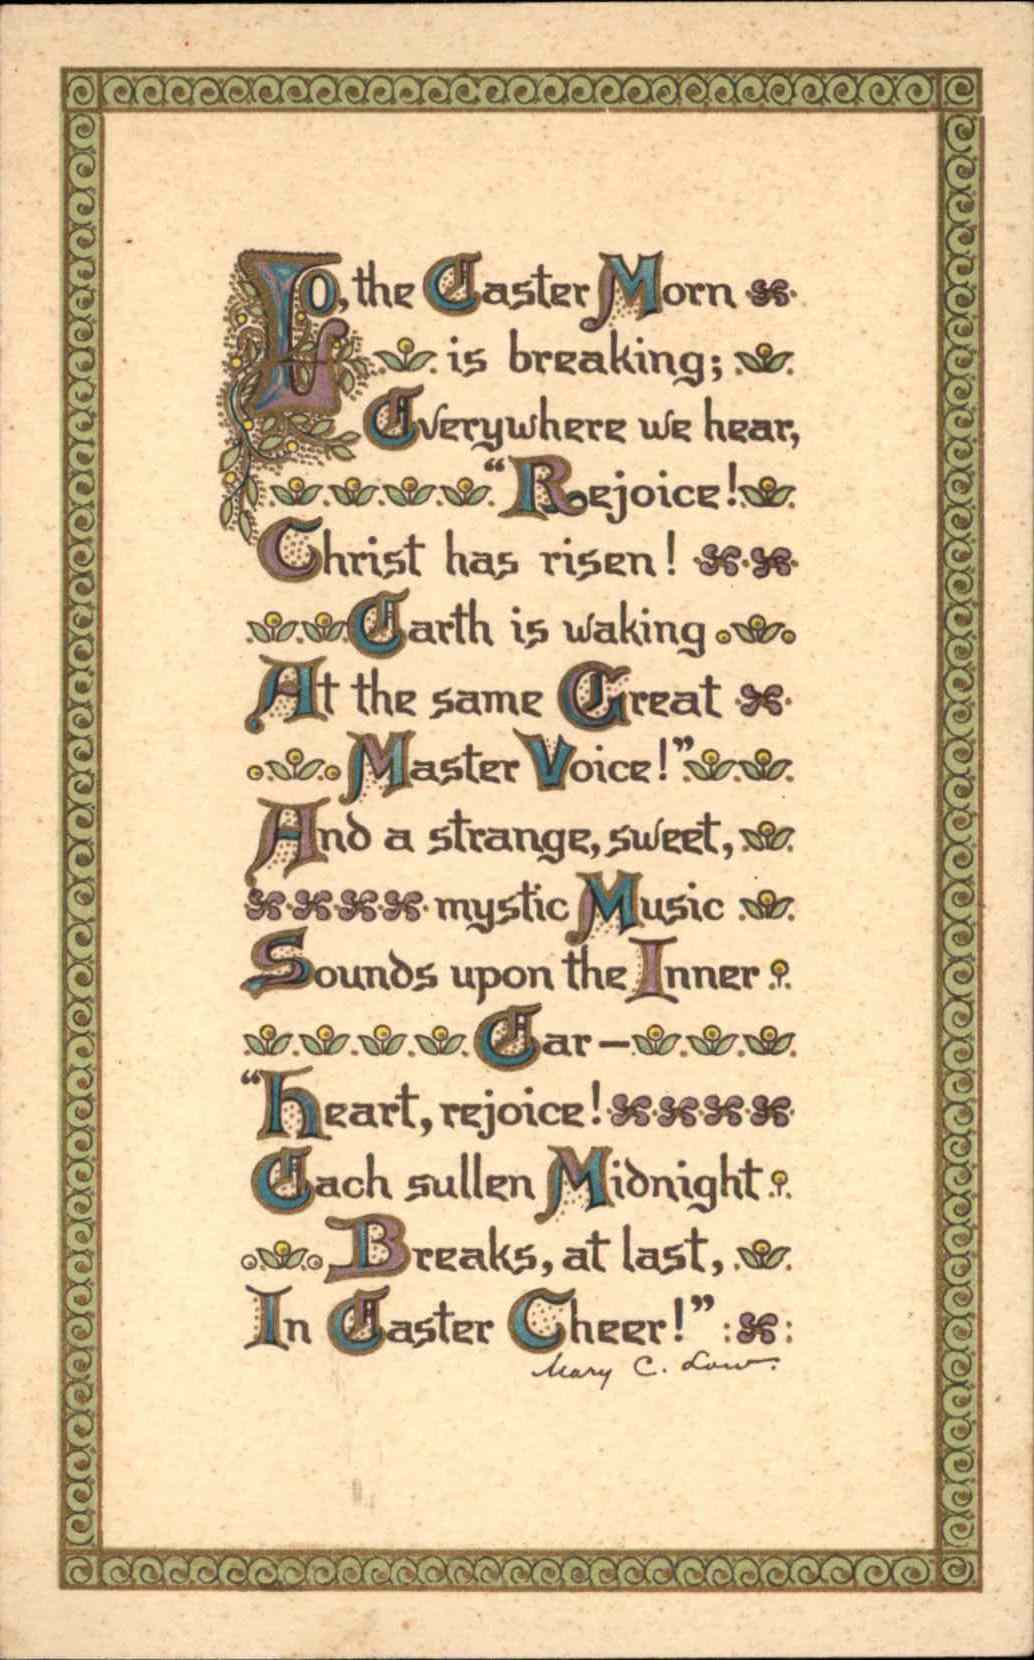 Lo, the Easter Morn
is breaking;
Everywhere we hear,
“Rejoice!
Christ has risen!
Earth is waking
At the same Great
Master Voice!”
And a strange, sweet,
mystic Music
Sounds upon the Inner
Ear—
“Heart, rejoice!
Each sullen Midnight
Breaks, at last,
In Easter Cheer!”
Mary C. Low.